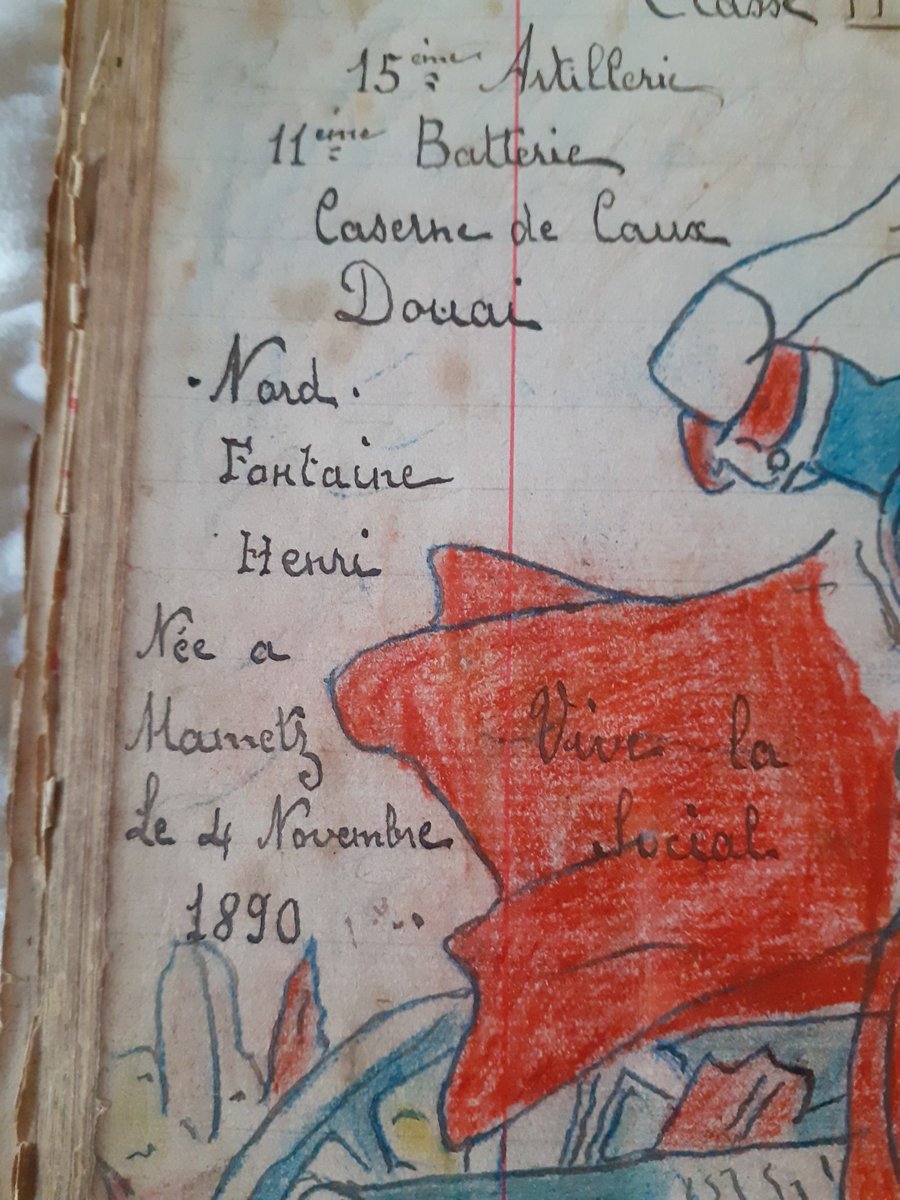 Classe 11
15ème Artillerie
11ème Batterie
Caserne de Caux
Douai
. Nord .
Fontaine
Henri
Née a
Mametz
Le 4 Novembre
1890
Vive la
Social